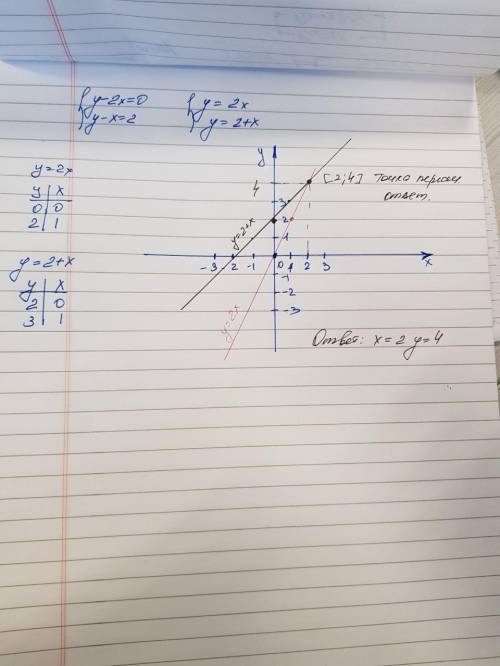 {y-2x=0 {y=2x
{y-x=2 {y=2+x
y=2x
y x
0 0
2 1
y=2+x
y x
2 0
3 1
y
4
3
2
1
-3 -2 -1 0 1 2 3 x
-1
-2
-3
y=2+x
y=2x
[2;4] Точка
ответ.
Ответ: x=2 y=4